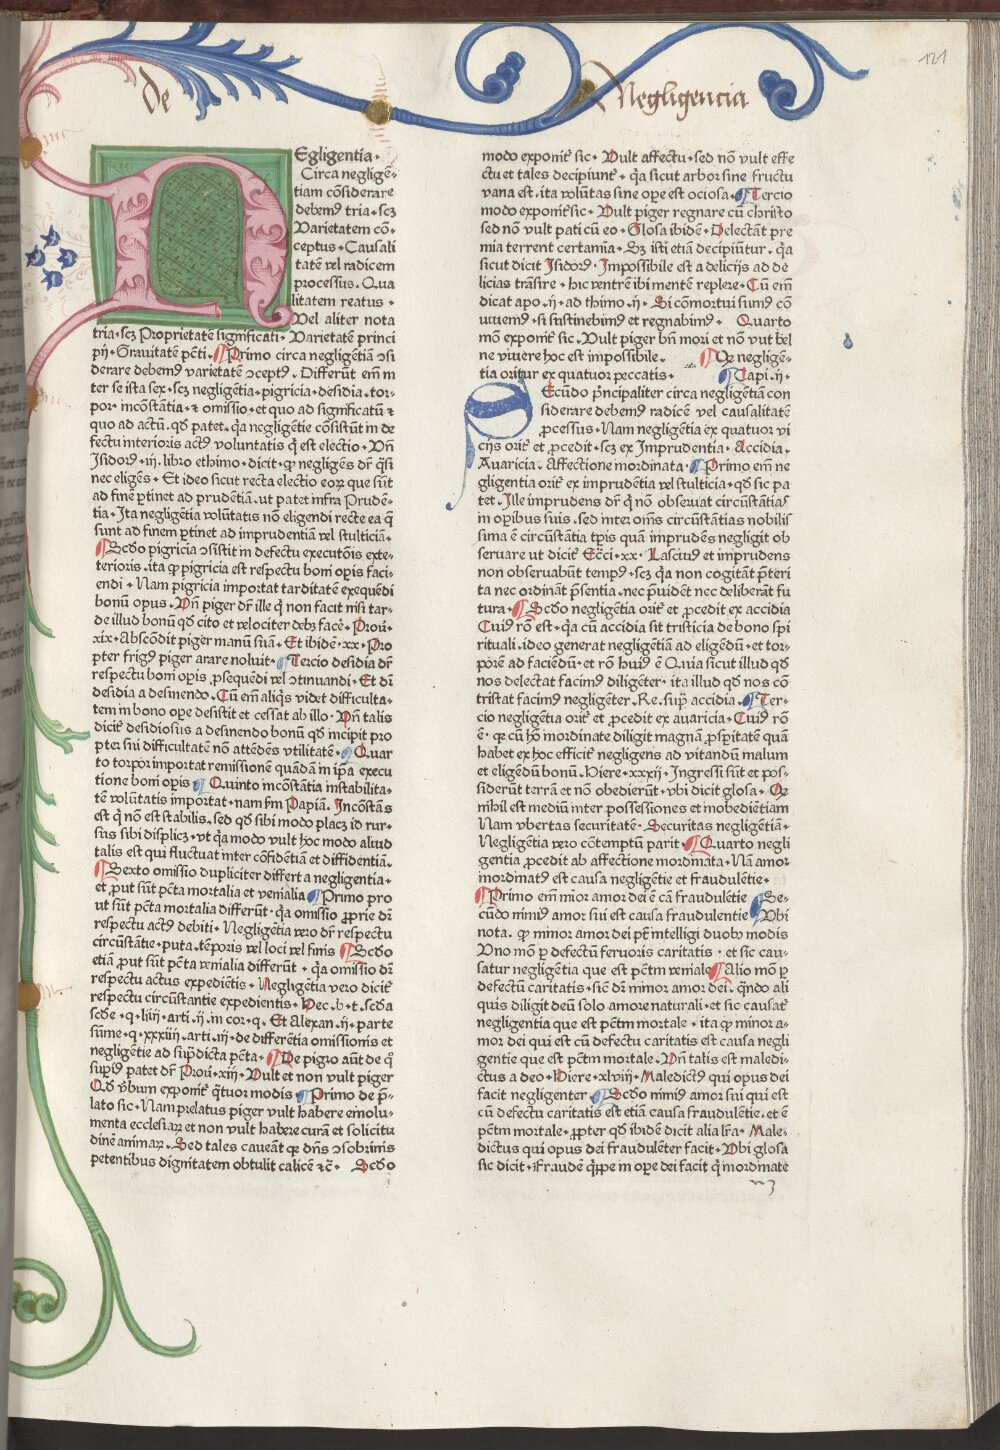 de Negligencia
121
Egligentia.
Circa neglige̅-
tiam co̅siderare
debemꝰ tria. scꝫ
Varietatem co̅-
ceptus. Causali
tate̅ vel radicem
processus. Qua
litatem reatus.
Vel aliter nota
tria. scꝫ Proprietate̅ significati. Varietate̅ princi
pij. Grauitate̅ pc̅ti. ¶ Primo circa neglige̅tia̅ ↄsi
derare debemꝰ varietate̅ ↄceptꝰ. Differu̅t em̅ in
ter se ista sex. scꝫ neglige̅tia. pigricia. desidia. tor-
por. inco̅stantia. ⁊ omissio. et quo ad significatu̅ ⁊
quo ad actu̅. qd̓ patet. q̓a negligentie co̅sistu̅t in de
fectu interioris actꝰ voluntatis q̓ est electio. Vn̅
Isidorꝰ. iij. libro ethimo. dicit. ꝙ neglige̅s dr̅ q̓si
nec elige̅s. Et ideo sicut recta electio eoꝝ que su̅t
ad fine̅ ꝑtinet ad prude̅tia̅. ut patet infra Prude̅-
tia. Ita negligentia volu̅tatis no̅ eligendi recte ea q̅
sunt ad finem ꝑtinet ad imprudentia̅ vel stulticia̅.
¶ Scd̓o pigricia ↄsistit in defectu executo̅is exte-
terioris. ita ꝙ pigricia est respectu boni oꝑis faci-
endi. Nam pigricia importat tarditate̅ exeque̅di
bonu̅ opus. Vn̅ piger dr̅ ille q̓ non facit nisi tar-
de illud bonu̅ qd̓ cito et velociter debꝫ face̅. Prou̓.
xix. Absco̅dit piger manu̅ sua̅. Et ibide̅. xx. Pro
pter frigꝰ piger arare noluit. ¶ Tercio desidia dr̅
respectu boni oꝑis ꝓseque̅di vel ↄtinuandi. Et dr̅
desidia a desinendo. Cu̅ em̅ aliq̓s videt difficulta-
tem in bono oꝑe desistit et cessat ab illo. Vn̅ talis
dicit̓ desidiosus a desinendo bonu̅ qd̓ incipit pro
pter sui difficultate̅ no̅ atte̅de̅s vtilitate̅. ¶ Quar
to torpor importat remissione̅ qua̅da̅ in ip̅a execu
tione boni oꝑis. ¶ Quinto inco̅stantia instabilita-
te̅ volu̅tatis importat. nam s̅m Papia̅. Inco̅sta̅s
est q̓ no̅ est stabilis. sed qd̓ sibi modo placꝫ id rur-
sus sibi displicꝫ. vt q̓a modo vult hoc modo aliud
talis est qui fluctuat inter co̅fide̅tia̅ et diffidentia̅.
¶ Sexto omissio dupliciter differt a negligentia.
et ꝓut su̅t pc̅ta mortalia et venialia ¶ Primo pro
ut su̅t pc̅ta mortalia differu̅t. q̓a omissio ꝓprie dr̅
respectu actꝰ debiti. Negligentia vero dr̅ respectu
circu̅stantie. puta. te̅poris vel loci vel finis ¶ Scd̓o
etia̅ ꝓut su̅t pc̅ta venialia differu̅t. q̓a omissio dr̅
respectu actus expedie̅tis. Negligentia vero dicit̓
respectu circu̅stantie expedientis. Hec. b. t. scd̓a
scd̓e. q. liiij. arti. ij. in cor. q. Et Alexan. ij. parte
su̅me. q. xxxiiij. arti. iij. de differe̅tia omissionis et
neglige̅tie ad sup̓dicta pe̅ta. ¶ De pigro au̅t de q̓
supiꝰ patet dr̅ Prou̓. xiij. Vult et non vult piger
Qd̓ v̓bum exponit̓ q̓tuor modis ¶ Primo de p̅-
lato sic. Nam prelatus piger vult habere emolu-
menta ecclesiaꝝ et non vult habere cura̅ et solicitu
dine̅ animaꝝ. Sed tales cauea̅t qꝫ dn̅s ↄsobrinis
petentibus dignitatem obtulit calice̅ ⁊c̅. Scd̓o
modo exponit̓ sic. Vult affectu. sed no̅ vult effe
ctu et tales decipiunt̓. q̓a sicut arbor sine fructu
vana est. ita volu̅tas sine oꝑe est ociosa. ¶ Tercio
modo exponit̓ sic. Vult piger regnare cu̅ christo
sed no̅ vult pati cu̅ eo. Glosa ibide̅. Delecta̅t pre
mia terrent certami̅a. Sꝫ isti etia̅ decipiu̅tur. q̓a
sicut dicit Isidorꝰ. Impossibile est a delicijs ad de
licias tra̅sire. hic ventre̅ ibi mente̅ replere. Cu̅ em̅
dicat apo. ij. ad thimo. ij. Si co̅mortui sumꝰ co̅
uiuemꝰ. si sustinebimꝰ et regnabimꝰ. Quarto
mo̅ exponit̓ sic. Vult piger bn̅ mori et no̅ vut bel
ne viuere hoc est impossibile. ¶ Qꝫ neglige̅-
tia oritur ex quatuor peccatis. ¶ Capi. ij.
Ecu̅do p̓ncipaliter circa negligentia̅ con
siderare debemꝰ radice̅ vel causalitate̅
ꝓcessus. Nam negligentia ex quatuor vi
cijs orit̓ et ꝓcedit. scꝫ ex Imprudentia. Accidia.
Auaricia. Affectione inordinata. ¶ Primo em̅ ne
gligentia orit̓ ex imprude̅tia vel stulticia. qd̓ sic pa
tet. Ille imprudens dr̅ q̓ no̅ obseruat circu̅sta̅tias
in oꝑibus suis. sed inter om̅s circu̅sta̅tias nobilis
sima e̅ circu̅stantia tp̅is qua̅ imprude̅s negligit ob
seruare ut dicit̓ Ecc̅i. xx. Lasciuꝰ et imprudens
non obseruabu̅t tempꝰ. scꝫ q̓a non cogita̅t p̅teri
ta nec ordina̅t p̅sentia. nec p̅uide̅t nec delibera̅t fu
tura. ¶ Scd̓o negligentia orit̓ et ꝓcedit ex accidia
Cuiꝰ ro̅ est. q̓a cu̅ accidia sit tristicia de bono spi
rituali. ideo generat negligentia̅ ad eligendu̅. et tor-
pore̅ ad faciendu̅. et ro̅ huiꝰ e̅ Quia sicut illud qd̓
nos delectat facimꝰ diligenter. ita illud qd̓ nos co̅
tristat facimꝰ negligenter. Re. supᷓ accidia. ¶ Ter-
cio negligentia orit̓ et ꝓcedit ex auaricia. Cuiꝰ ro̅
e̅. qꝫ cu̅ ho̅ inordinate diligit magna̅ ꝓsꝑitate̅ qua̅
habet ex hoc efficit̓ negligens ad vitandu̅ malum
et eligendu̅ bonu̅. Hiere. xxxij. Ingressi su̅t et pos-
siderut terra̅ et no̅ obedieru̅t. vbi dicit glosa. Qꝫ
nihil est mediu̅ inter possessiones et inobedie̅tiam
Nam vbertas securitate̅. Securitas negligentia̅.
Negligentia vero co̅temptu̅ parit. ¶ Quarto negli
gentia ꝓcedit ab affectione inordinata. Na̅ amor
inordinatꝰ est causa negligentie et fraudule̅tie.
¶ Primo em̅ mior amor dei e̅ ca̅ fraudule̅tie ¶ Se-
cu̅do nimiꝰ amor sui est causa fraudulentie ¶ Vbi
nota. ꝙ minor amor dei pt̅ intelligi duobꝰ modis
Uno mo̅ ꝑ defectu̅ feruoris caritatis. et sic cau-
satur negligentia que est pc̅tm veniale ¶ Alio mo̅ ꝑ
defectu̅ caritatis. sic dr̅ minor amor dei. qn̅do ali
quis diligit deu̅ solo amore naturali. et sic causat̓
negligentia que est pc̅tm mortale. ita ꝙ minor a-
mor dei qui est cu̅ defectu caritatis est causa negli
gentie que est pc̅tm mortale. Vn̅ talis est maledi-
ctus a deo. Hiere. xlviij. Maledictꝰ qui opus dei
facit negligenter ¶ Scd̓o nimiꝰ amor sui qui est
cu̅ defectu caritatis est etia̅ causa fraudule̅tie. et e̅
pc̅tm mortale. ꝓpter qd̓ ibide̅ dicit alia lr̅a. Male-
dictus qui opus dei fraudule̅ter facit. Vbi glosa
sic dicit. Fraude̅ q̓ippe in oꝑe dei facit q̓ inordinate